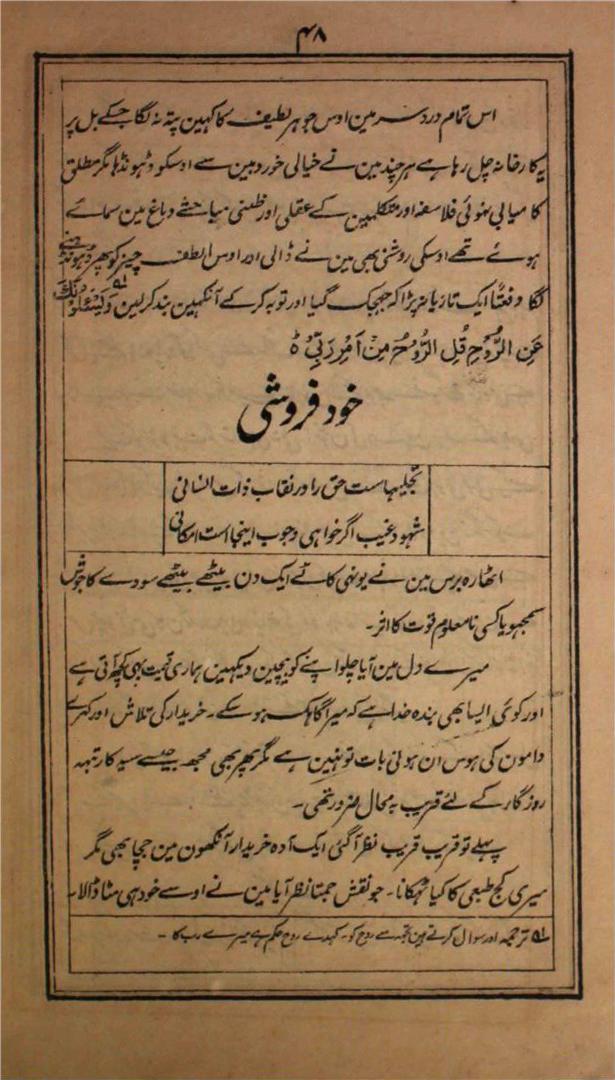 ۴۸
اس تمام درد سر مین اوس جوہر لطیف کا کہین پتہ نہ لگا جسکے بل پر
یہ کارخانہ چل رہا ہے ہر چند مین نے خیالی خوردبین سے اوسکو ڈہونڈہا مگر مطلق
کامیابی نہوئی فلاسفہ اور متکلمین کے عقلی اور ظنینی مباحثے دماغ مین سمائے
ہوئے تھے اوسکی روشنی بھی مین نے ڈالی اور اوس الطف چیز کو پھر ڈہونڈہنے
لگا دفعتًا ایک تازیانہ پڑا کہ جھجک گیا اور توبہ کر کے آنکہین بند کر لین وَیَسْئَلُوْنَكَ ۵۱
عَنِ الرُّوْحِ قُلِ الرُّوْحُ مِنْ اَمْرِ رَبِّیْ ط
خود فروشی
تجلیہاست حق را در نقاب ذات انسانی
شہود غیب اگر خواہی وجوب اینجا است امکانی
اٹھارہ برس مین نے یونہی کاٹے ایک دن بیٹھے بیٹھے سودے کا جوش
سمجھو یا کسی نامعلوم قوت کا اثر۔
میرے دل مین آیا چلو اپنے کو بیچین دیکہین ہماری قیمت بہی کچھ آتی ہے
اور کوئی ایسا بھی بندہ خدا ہے کہ میرا گاہک ہو سکے۔ خریدار کی تلاش اور کہرے
دامون کی ہوس ان ہونی بات تو نہین ہے مگر پھر بھی مجھ جیسے سیہ کار تبہہ
روزگار کے لئے قریب بہ محال ضرور تھی۔
پہلے تو قریب قریب نظر آ گئی ایک آدہ خریدار آنکھون مین جچا بھی مگر
میری کج طبعی کا کیا ٹہکانا۔ جو نقش جمتا نظر آیا مین نے اوسے خود ہی مٹا ڈالا۔
۵۱ ترجمہ اور سوال کرتے ہین تجہہ سے روح کو۔ کہدے روح حکم ہے میرے رب کا۔